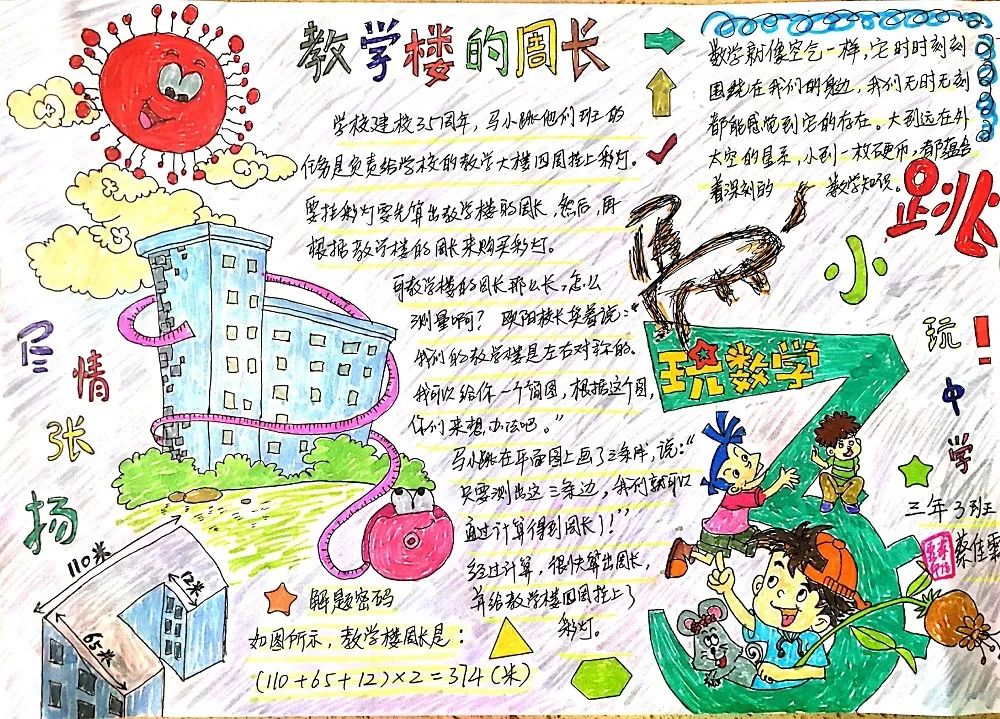 教学楼的周长
学校建校35周年，马小跳他们班的
任务是负责给学校的教学大楼四周挂上彩灯。
要挂彩灯需先算出教学楼的周长，然后，再
根据教学楼的周长来购买彩灯。
可教学楼的周长那么长，怎么
测量啊？欧阳校长笑着说：“
我们的教学楼是左右对称的。
我可以给你一个简图，根据这个图，
你们来想办法吧。”
马小跳在平面图上画了三条线，说：“
只要测出这三条边，我们就可以
通过计算得到周长了！”
经过计算，很快算出周长，
并给教学楼四周挂上了
彩灯。
数学就像空气一样，它时时刻刻
围绕在我们的身边，我们无时无刻
都能感觉到它的存在。大到远在外
太空的星系，小到一枚硬币，都蕴含
着深刻的数学知识。
跳
小
玩！
中
学
玩数学
三年3班
蔡佳霖
尽
情
张
扬
110米
12米
65米
解题密码
如图所示，教学楼周长是：
(110+65+12)×2=374(米)